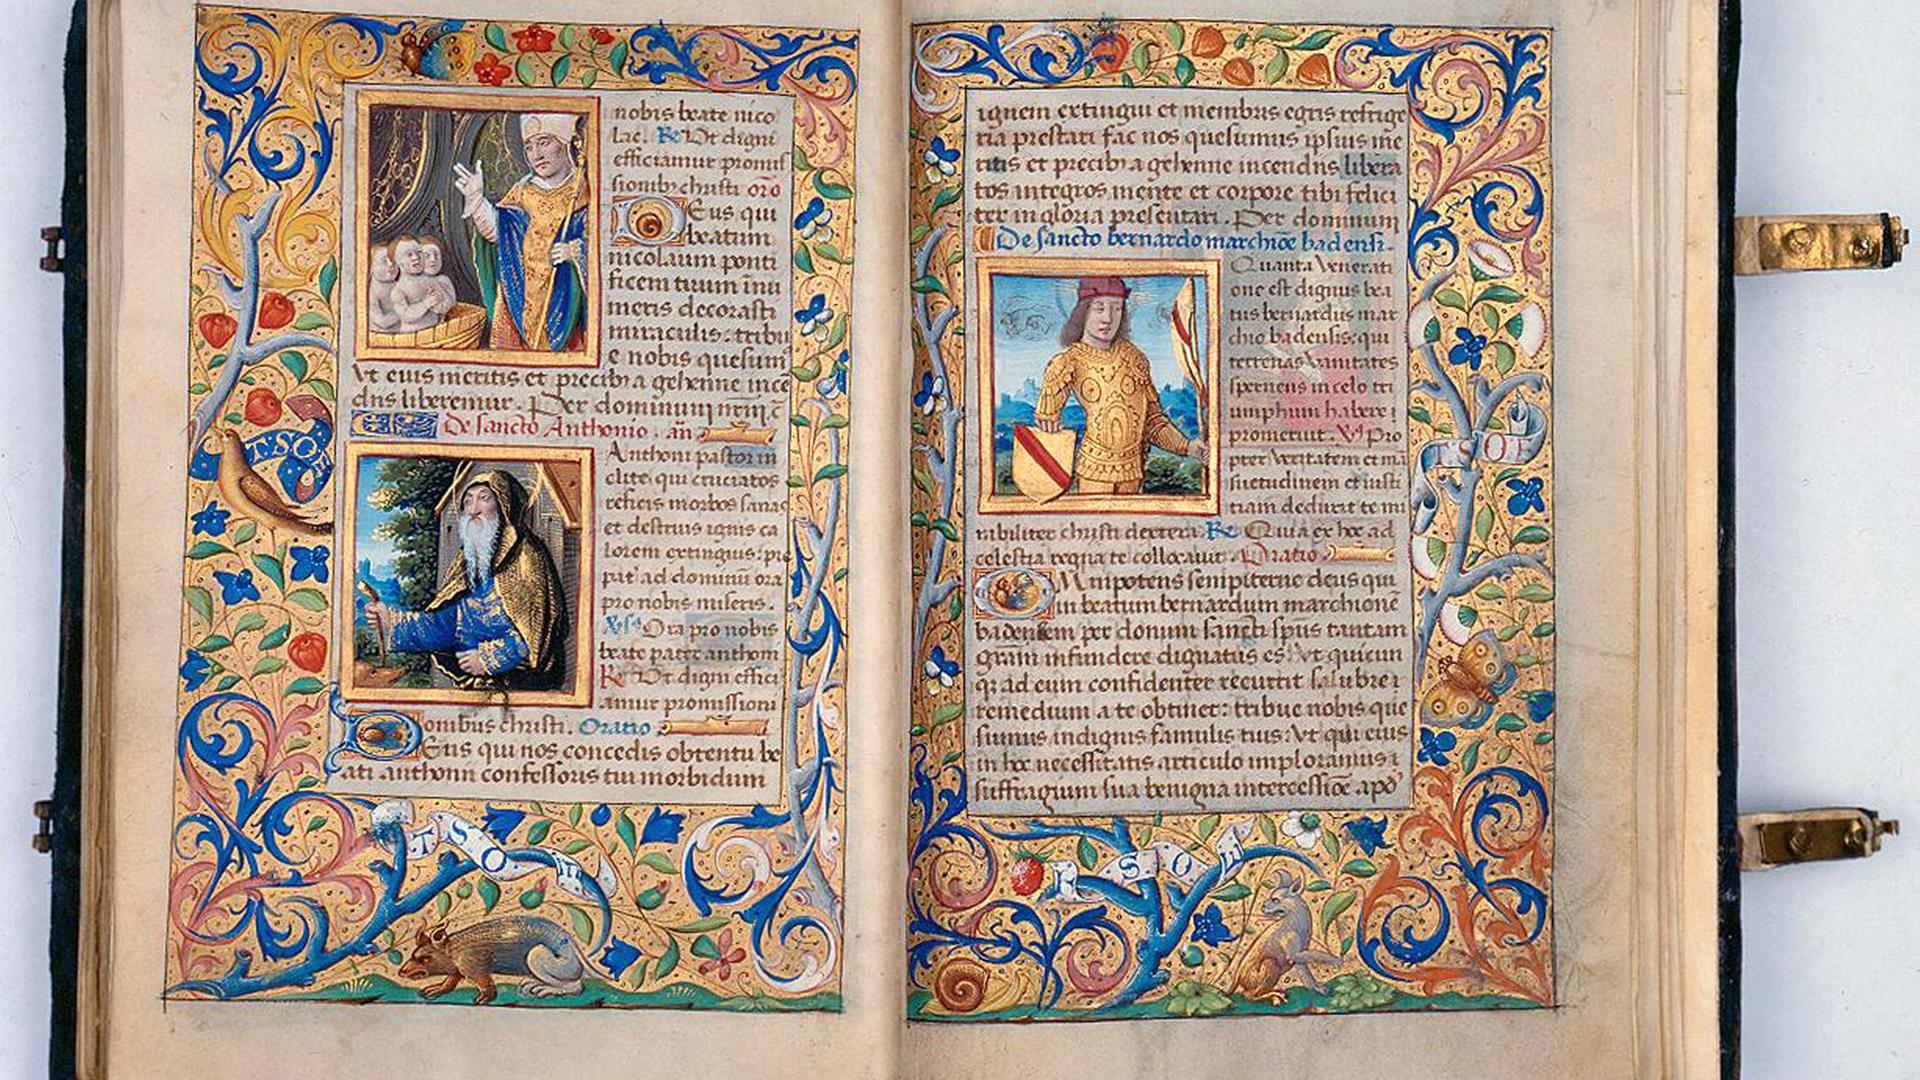 nobis beate nico
lae. R Ut digni
efficiamur promis
sionib christi oro
Deus qui
beatum
nicolaum ponti
ficem tuum inu
meris decorasti
miraculis: tribu
e nobis quesum
ut eius meritis et precib a gehenne ince
diis liberemur. Per dominum nrm
De sancto Anthonio. añ
Anthoni pastor in
clite qui cruciatos
reficis morbos sanas
et destruis ignis ca
lorem extinguis: pie
pat ad dominū ora
pro nobis miseris.
Ora pro nobis
beate pater anthoni
R Ut digni effici
amur promissioni
onibus christi. Oratio
Deus qui nos concedis obtentu be
ati anthonii confessoris tui morbidum
TSO
TSO
ignem extingui et membris egris refrige
ria prestari fac nos quesumus ipsius me
ritis et precib a gehenne incendiis libera
tos integros mente et corpore tibi felici
ter in gloria presentari. Per dominum
De sancto bernardo marchiōe badensi
Quanta venerati
one est dignus bea
tus bernardus mar
chio badensis: qui
terrenas vanitates
spernens in celo tri
umphum habere
promeruit. V Pro
pter veritatem et mā
suetudinem et iusti
tiam deduxit te mi
rabiliter christi dextera. R Quia ex hoc ad
celestia regna te collocavit. Oratio
Omnipotens sempiterne deus qui
in beatum bernardum marchionē
badensem per donum sancti spūs tantam
grām infundere dignatus es: Ut quicun
q ad eum confidenter recurrit salubre
remedium a te obtinet: tribue nobis que
sumus indignis famulis tuis: Ut qui eius
in hoc necessitatis articulo imploramus
suffragium sua benigna intercessiōe apd
TSO
SO